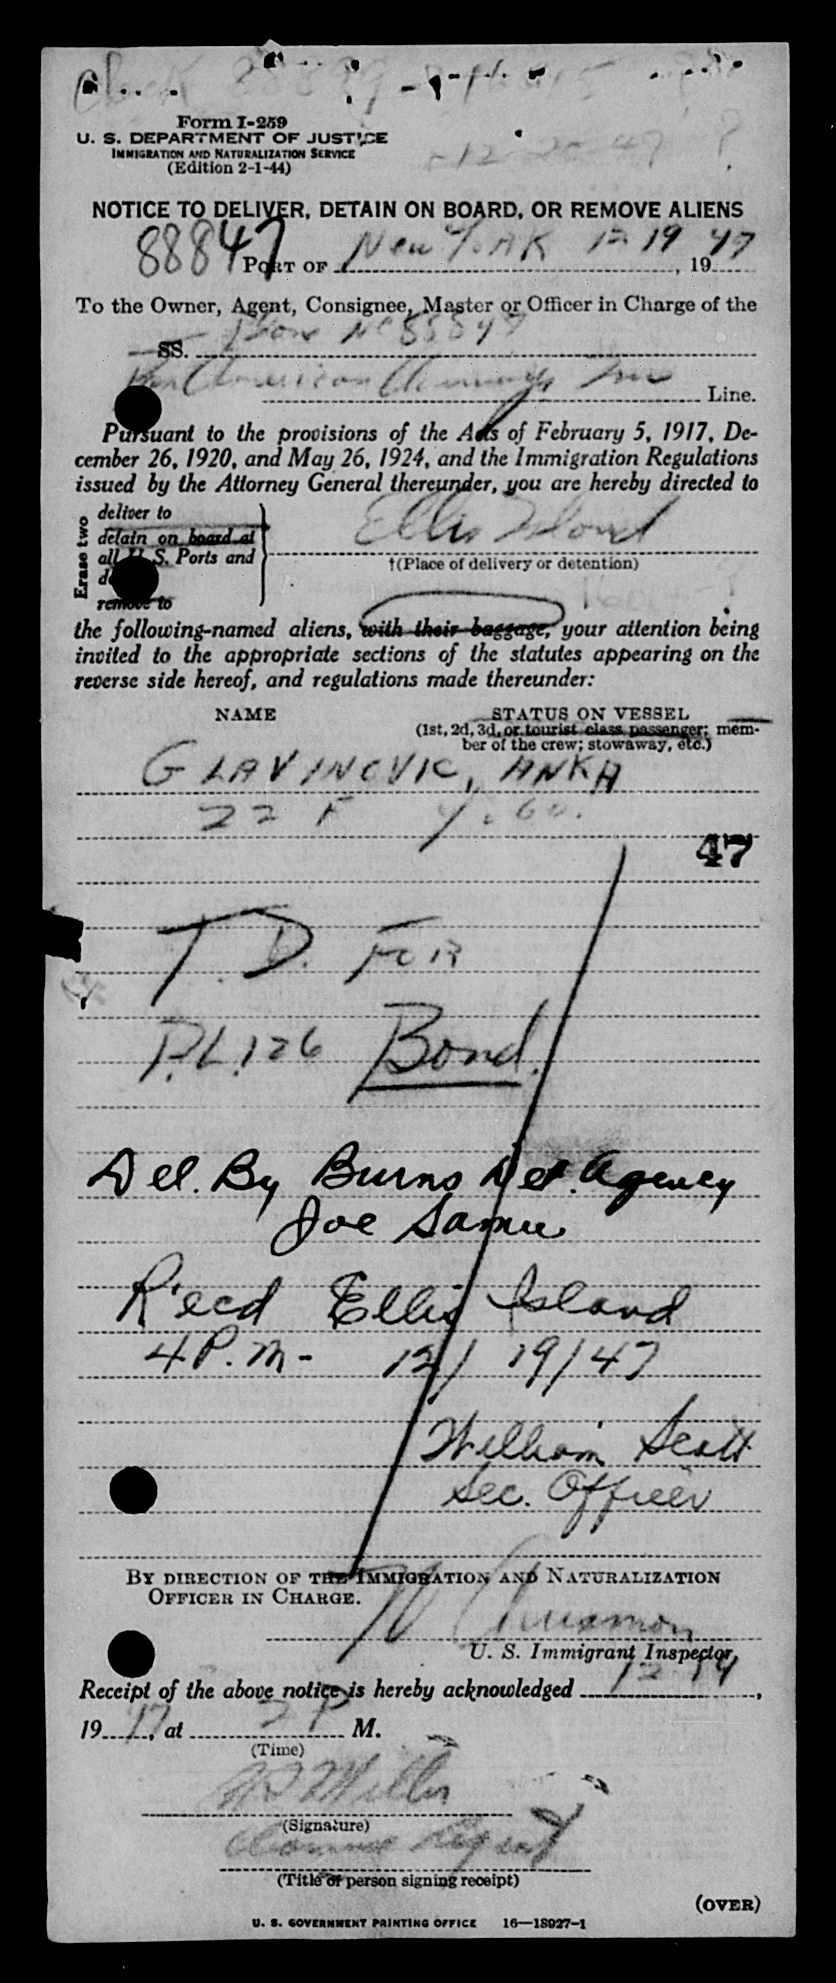 Form I-259
U. S. DEPARTMENT OF JUSTICE
IMMIGRATION AND NATURALIZATION SERVICE
(Edition 2-1-44)
-12-20-47 ?
NOTICE TO DELIVER, DETAIN ON BOARD, OR REMOVE ALIENS
88847
PORT OF New York 12 19, 1947
To the Owner, Agent, Consignee, Master or Officer in Charge of the
SS. Plane NC 88847
Pan American Airways Inc Line.
Pursuant to the provisions of the Acts of February 5, 1917, De-
cember 26, 1920, and May 26, 1924, and the Immigration Regulations
issued by the Attorney General thereunder, you are hereby directed to
Erase two
deliver to
detain on board at
all U. S. Ports and
remove to
Ellis Island
†(Place of delivery or detention)
the following-named aliens, with their baggage, your attention being
invited to the appropriate sections of the statutes appearing on the
reverse side hereof, and regulations made thereunder:
NAME STATUS ON VESSEL
(1st, 2d, 3d, or tourist class passenger; mem-
ber of the crew; stowaway, etc.)
GLAVINOVIC, ANKA
22 F
47
T. D. FOR
P.L. 126 Bond.
Del. By Burns Det. Agency
Joe
R'ecd Ellis Island
4 P.M- 12/19/47
William Scott
Sec. Officer
BY DIRECTION OF THE IMMIGRATION AND NATURALIZATION
OFFICER IN CHARGE.
U. S. Immigrant Inspector.
Receipt of the above notice is hereby acknowledged 12-19,
1947, at 2 P M.
(Time)
Miller
(Signature)
Agent
(Title of person signing receipt)
(OVER)
U. S. GOVERNMENT PRINTING OFFICE 16—18927-1